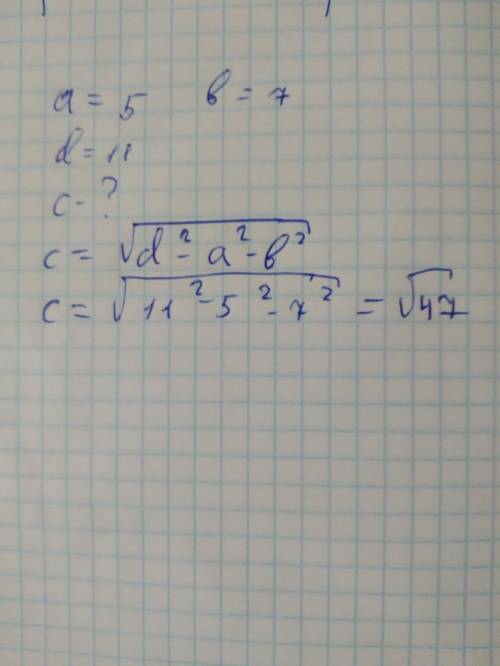 a = 5 b = 7
d = 11
c - ?
c = √d² - a² - b²
c = √11² - 5² - 7² = √47